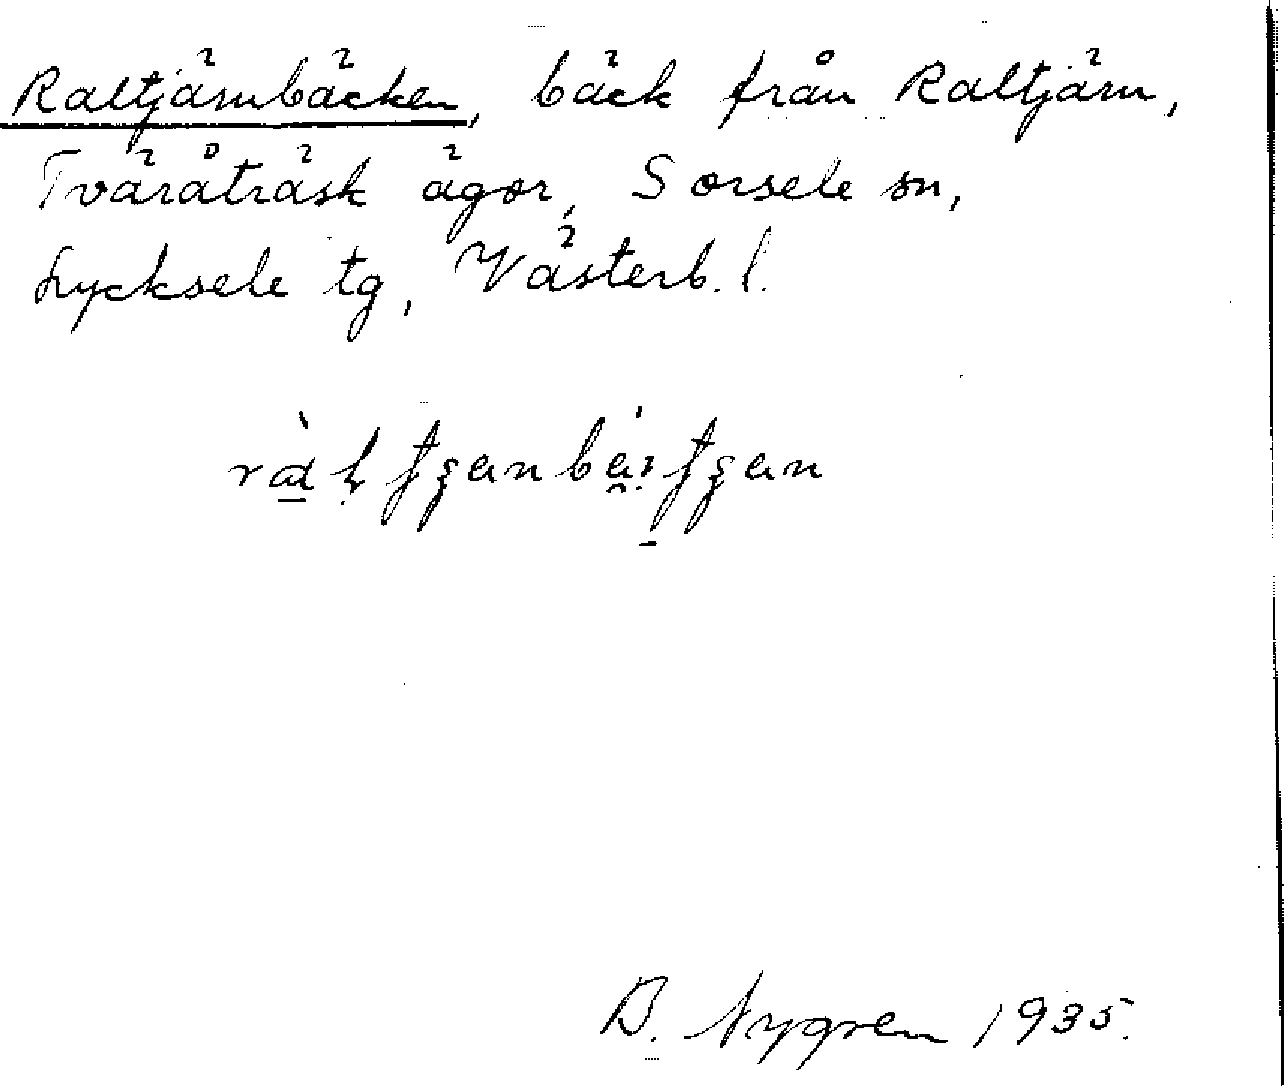 Raltjärnbäcken, bäck från Raltjärn,
Tväråträsk ägor, Sorsele sn,
Lycksele tg, Västerb. l.
B. Nygren 1935.